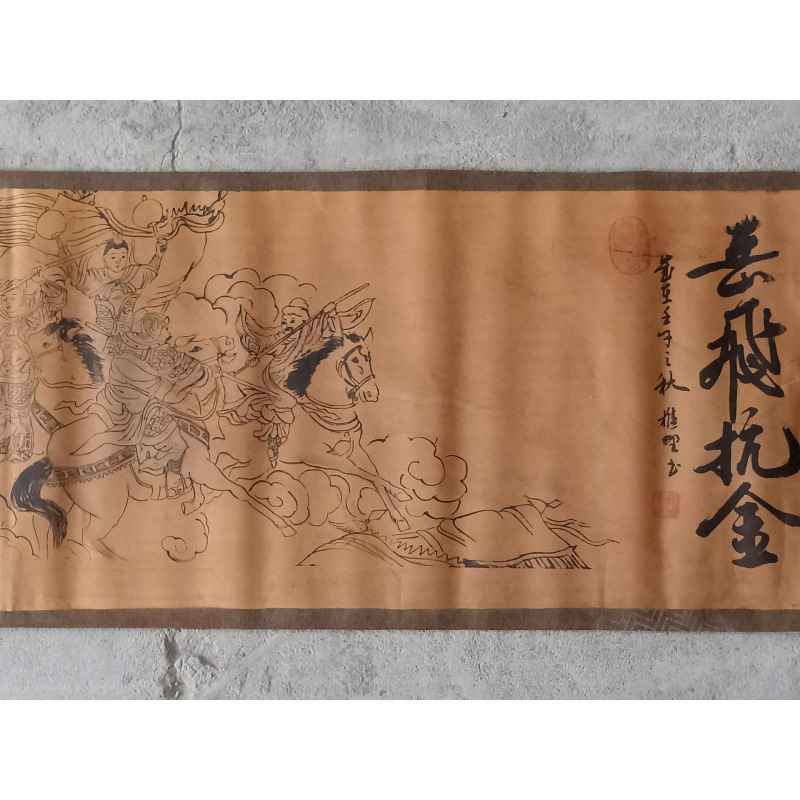 岳飛抗金
歲在壬子之秋